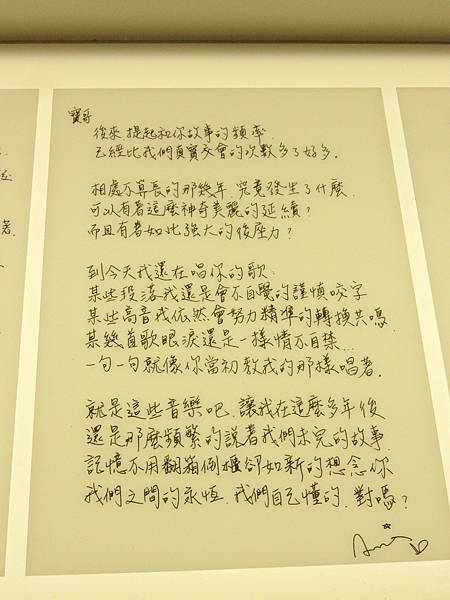 寶哥
後來,提起和你故事的頻率
已經比我們真實交會的次數多了好多。
相處不算長的那幾年 究竟發生了什麼
可以有著這麼神奇美麗的延續?
而且有著如此強大的後座力?
到今天我還在唱你的歌.
某些段落我還是會不自覺的謹慎咬字
某些高音我依然會努力精準的轉換共鳴
某幾首歌眼淚還是一樣情不自禁...
一句一句就像你當初教我的那樣唱著.
就是這些音樂吧 讓我在這麼多年後
還是那麼頻繁的說著我們未完的故事
記憶不用翻箱倒櫃卻如新的想念你
我們之間的永恆.我們自己懂的.對嗎?
著.